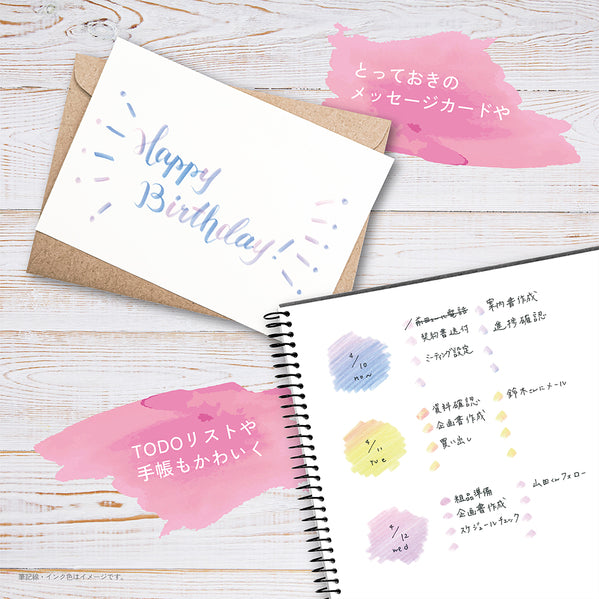 とっておきの
メッセージカードや
Happy
Birthday!
前田さんに電話
契約書送付
ミーティング設定
案内書作成
進捗確認
4/10
mon
資料確認
企画書作成
買い出し
鈴木さんにメール
4/11
tue
粗品準備
企画書作成
スケジュールチェック
山田くんフォロー
4/12
wed
TODOリストや
手帳もかわいく
筆記線・インク色はイメージです。